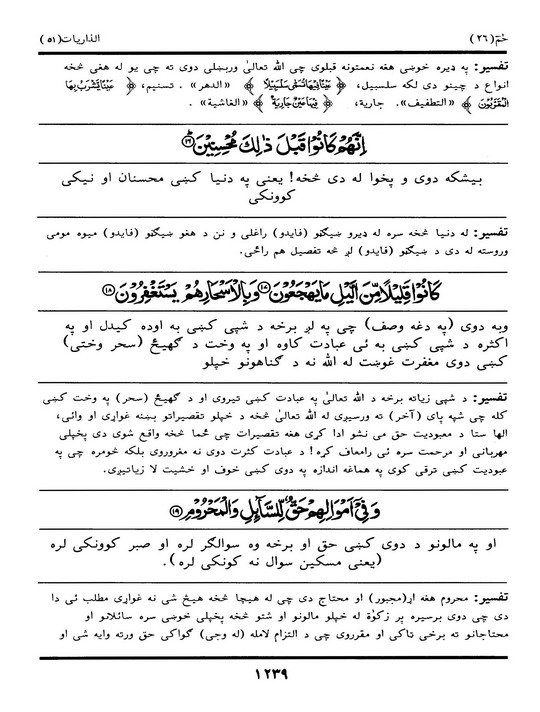 حٰمٓ (۲۶) الذاریات (۵۱)
تفسیر: په ډیره خوښۍ هغه نعمتونه قبلوي چې الله تعالیٰ ورښلي دوی ته چې یو له هغې څخه
انواع د چینو دي لکه سلسبیل، ﴿ عَيْنًا فِيْهَا تُسَمّٰى سَلْسَبِيْلًا ﴾ «الدهر» . تسنیم، ﴿ عَيْنًا يَّشْرَبُ بِهَا
الْمُقَرَّبُوْنَ ﴾ «التطفیف». جاریة، ﴿ فِيْهَا عَيْنٌ جَارِيَةٌ ﴾ «الغاشیة» .
اِنَّهُمْ كَانُوْا قَبْلَ ذٰلِكَ مُحْسِنِيْنَ ۱۶
بیشکه دوی و پخوا له دې څخه! یعنې په دنیا کښې محسنان او نیکي
کوونکي
تفسیر: له دنیا څخه سره له ډیرو ښیګڼو (فایدو) راغلي و نن د هغو ښیګڼو (فایدو) میوه مومي
وروسته له دې د ښیګڼو (فایدو) لږ څه تفصیل هم راځي.
كَانُوْا قَلِيْلًا مِّنَ الَّيْلِ مَا يَهْجَعُوْنَ ۱۷ وَبِالْاَسْحَارِ هُمْ يَسْتَغْفِرُوْنَ ۱۸
وبه دوی (په دغه وصف) چې په لږ برخه د شپې کښې به اوده کیدل او په
اکثره د شپې کښې به ئې عبادت کاوه او په وخت د ګهیځ (سحر وختي)
کښې دوی مغفرت غوښت له الله نه د ګناهونو خپلو
تفسیر: د شپې زیاته برخه د الله تعالیٰ په عبادت کښې تیروي او د ګهیځ (سحر) په وخت کښې
کله چې شپه پای (آخر) ته ورسیږي له الله تعالیٰ څخه د خپلو تقصیراتو بښنه غواړي او وائي،
الها ستا د معبودیت حق مې نشو ادا کړی هغه تقصیرات چې ځما څخه واقع شوي دي پخپلې
مهربانۍ او مرحمت سره ئې رامعاف کړه! د عبادت کثرت دوی نه مغروروي بلکه څومره چې په
عبودیت کښې ترقي کوي په هماغه اندازه په دوی کښې خوف او خشیت لا زیاتیږي.
وَفِيْٓ اَمْوَالِهِمْ حَقٌّ لِّلسَّآئِلِ وَالْمَحْرُوْمِ ۱۹
او په مالونو د دوی کښې حق او برخه وه سوالګر لره او صبر کوونکي لره
(یعنې مسکین سوال نه کونکي لره).
تفسیر: محروم هغه اړ(مجبور) او محتاج دی چې له هیچا څخه هیڅ شی نه غواړي مطلب ئې دا
دی چې دوی برسیره پر زکوٰة له خپلو مالونو او شتو څخه پخپلې خوښۍ سره سائلانو او
محتاجانو ته برخې ټاکي او مقرروي چې د التزام لامله (له وجې) ګواکې حق ورته وایه شي او
۱۲۳۹